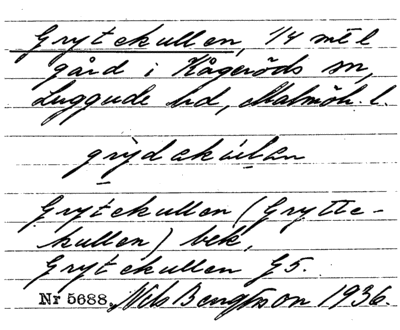 Grytekullen, 1/4 mtl
gård i Kågeröds sn,
Luggude hd, Malmöh. l.
grydakulan
Grytekullen (Grytte-
kullen) bek,
Grytekullen G5.
Nr 5688. Nils Bengtsson 1936.